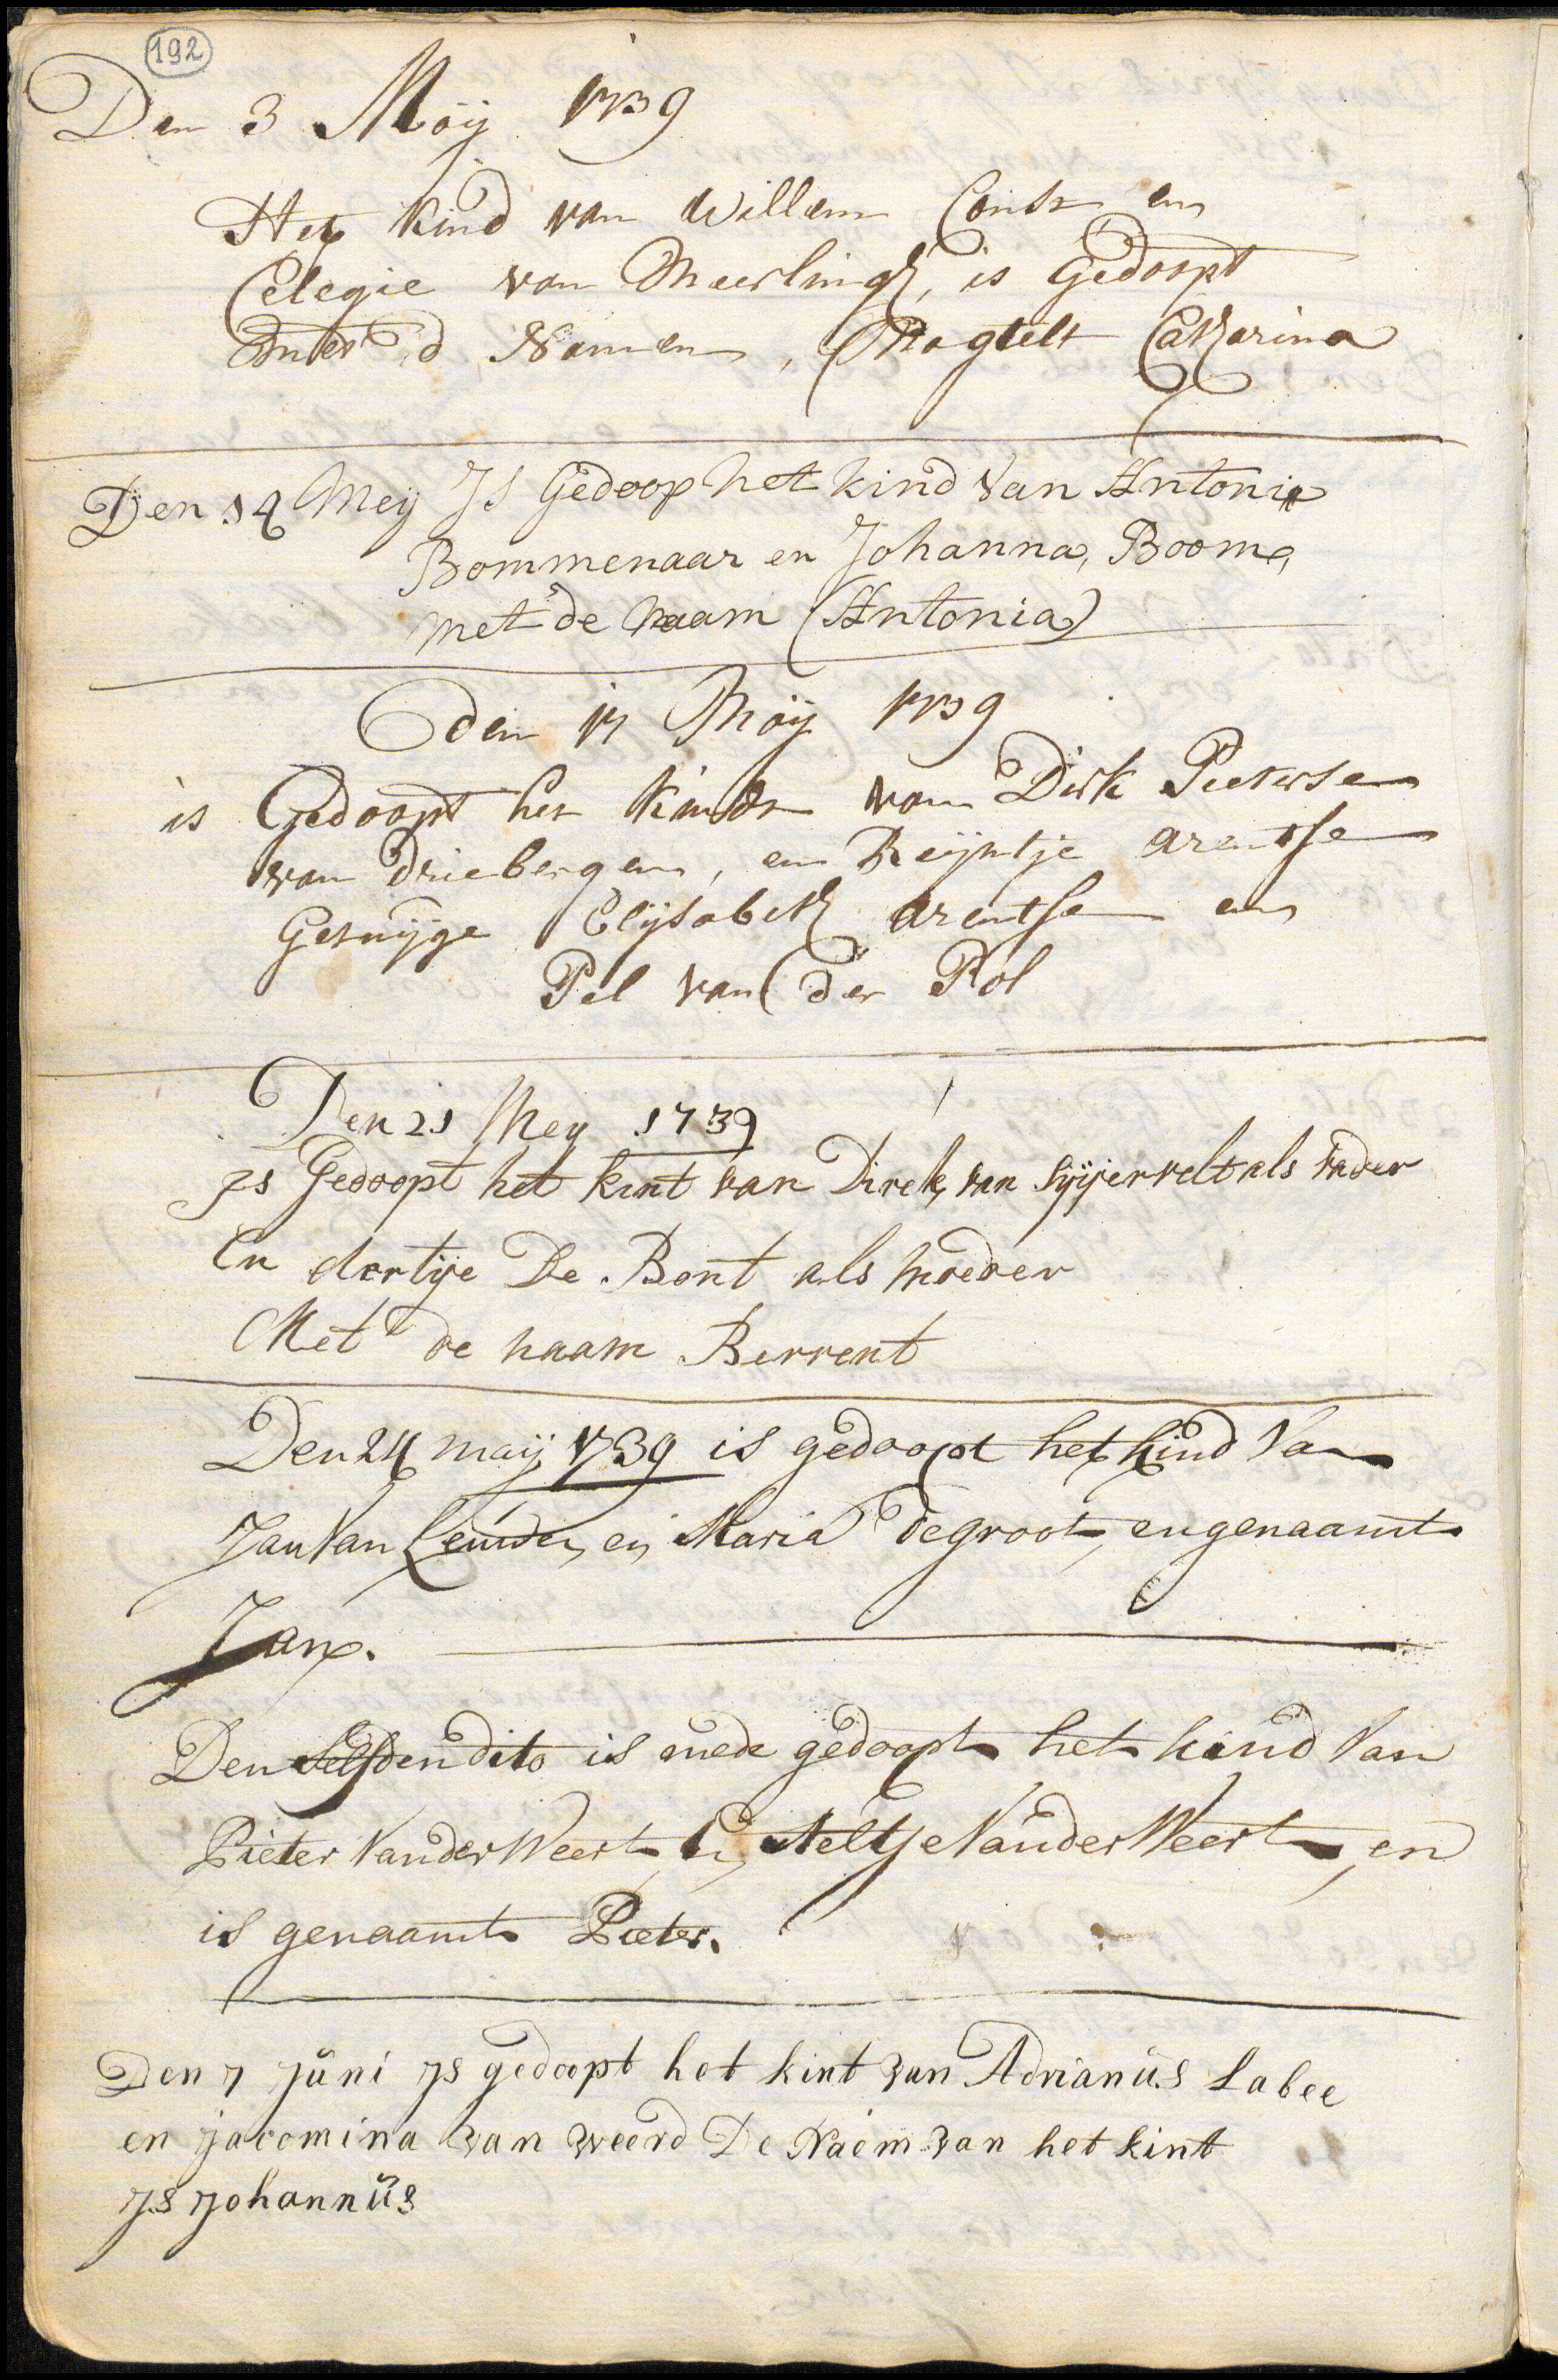 192
Den 3 Maÿ 1739
Het kind van Willem Const en
Celegie van Meerlingh, is Gedoopt
met d Namen, Magtelt Catharina
Den 14 Meÿ Js Gedoop het kind van Antonie
Bommenaar en Johanna, Boom,
met de Naam (Antonia)
den 17 Maÿ 1739
is Gedoopt het kindt van Dirk Peeterse
van Driebergen, en Reijntje arentse
Getuÿge Elÿsabeth arentse en
Pel van der Pol
Den 21 Mey 1739
Js Gedoopt het kint van Direk van als vader
En dertije De Bont als moeder
Met de naam Berrent
Den 24 maij 1739 is gedoopt het kind Van
Jan Van Leinden en Maria de groot, en genaamt
Jan.
Den selfden dito is mede gedoopt het kind Van
Pieter Van der Weert En Neeltje Van der Weert, en
is genaamt Pieter.
Den 7 Juni Js gedoopt het kint van Adrianus Labee
en jacomina van weerd De Naem van het kint
Js Johannus